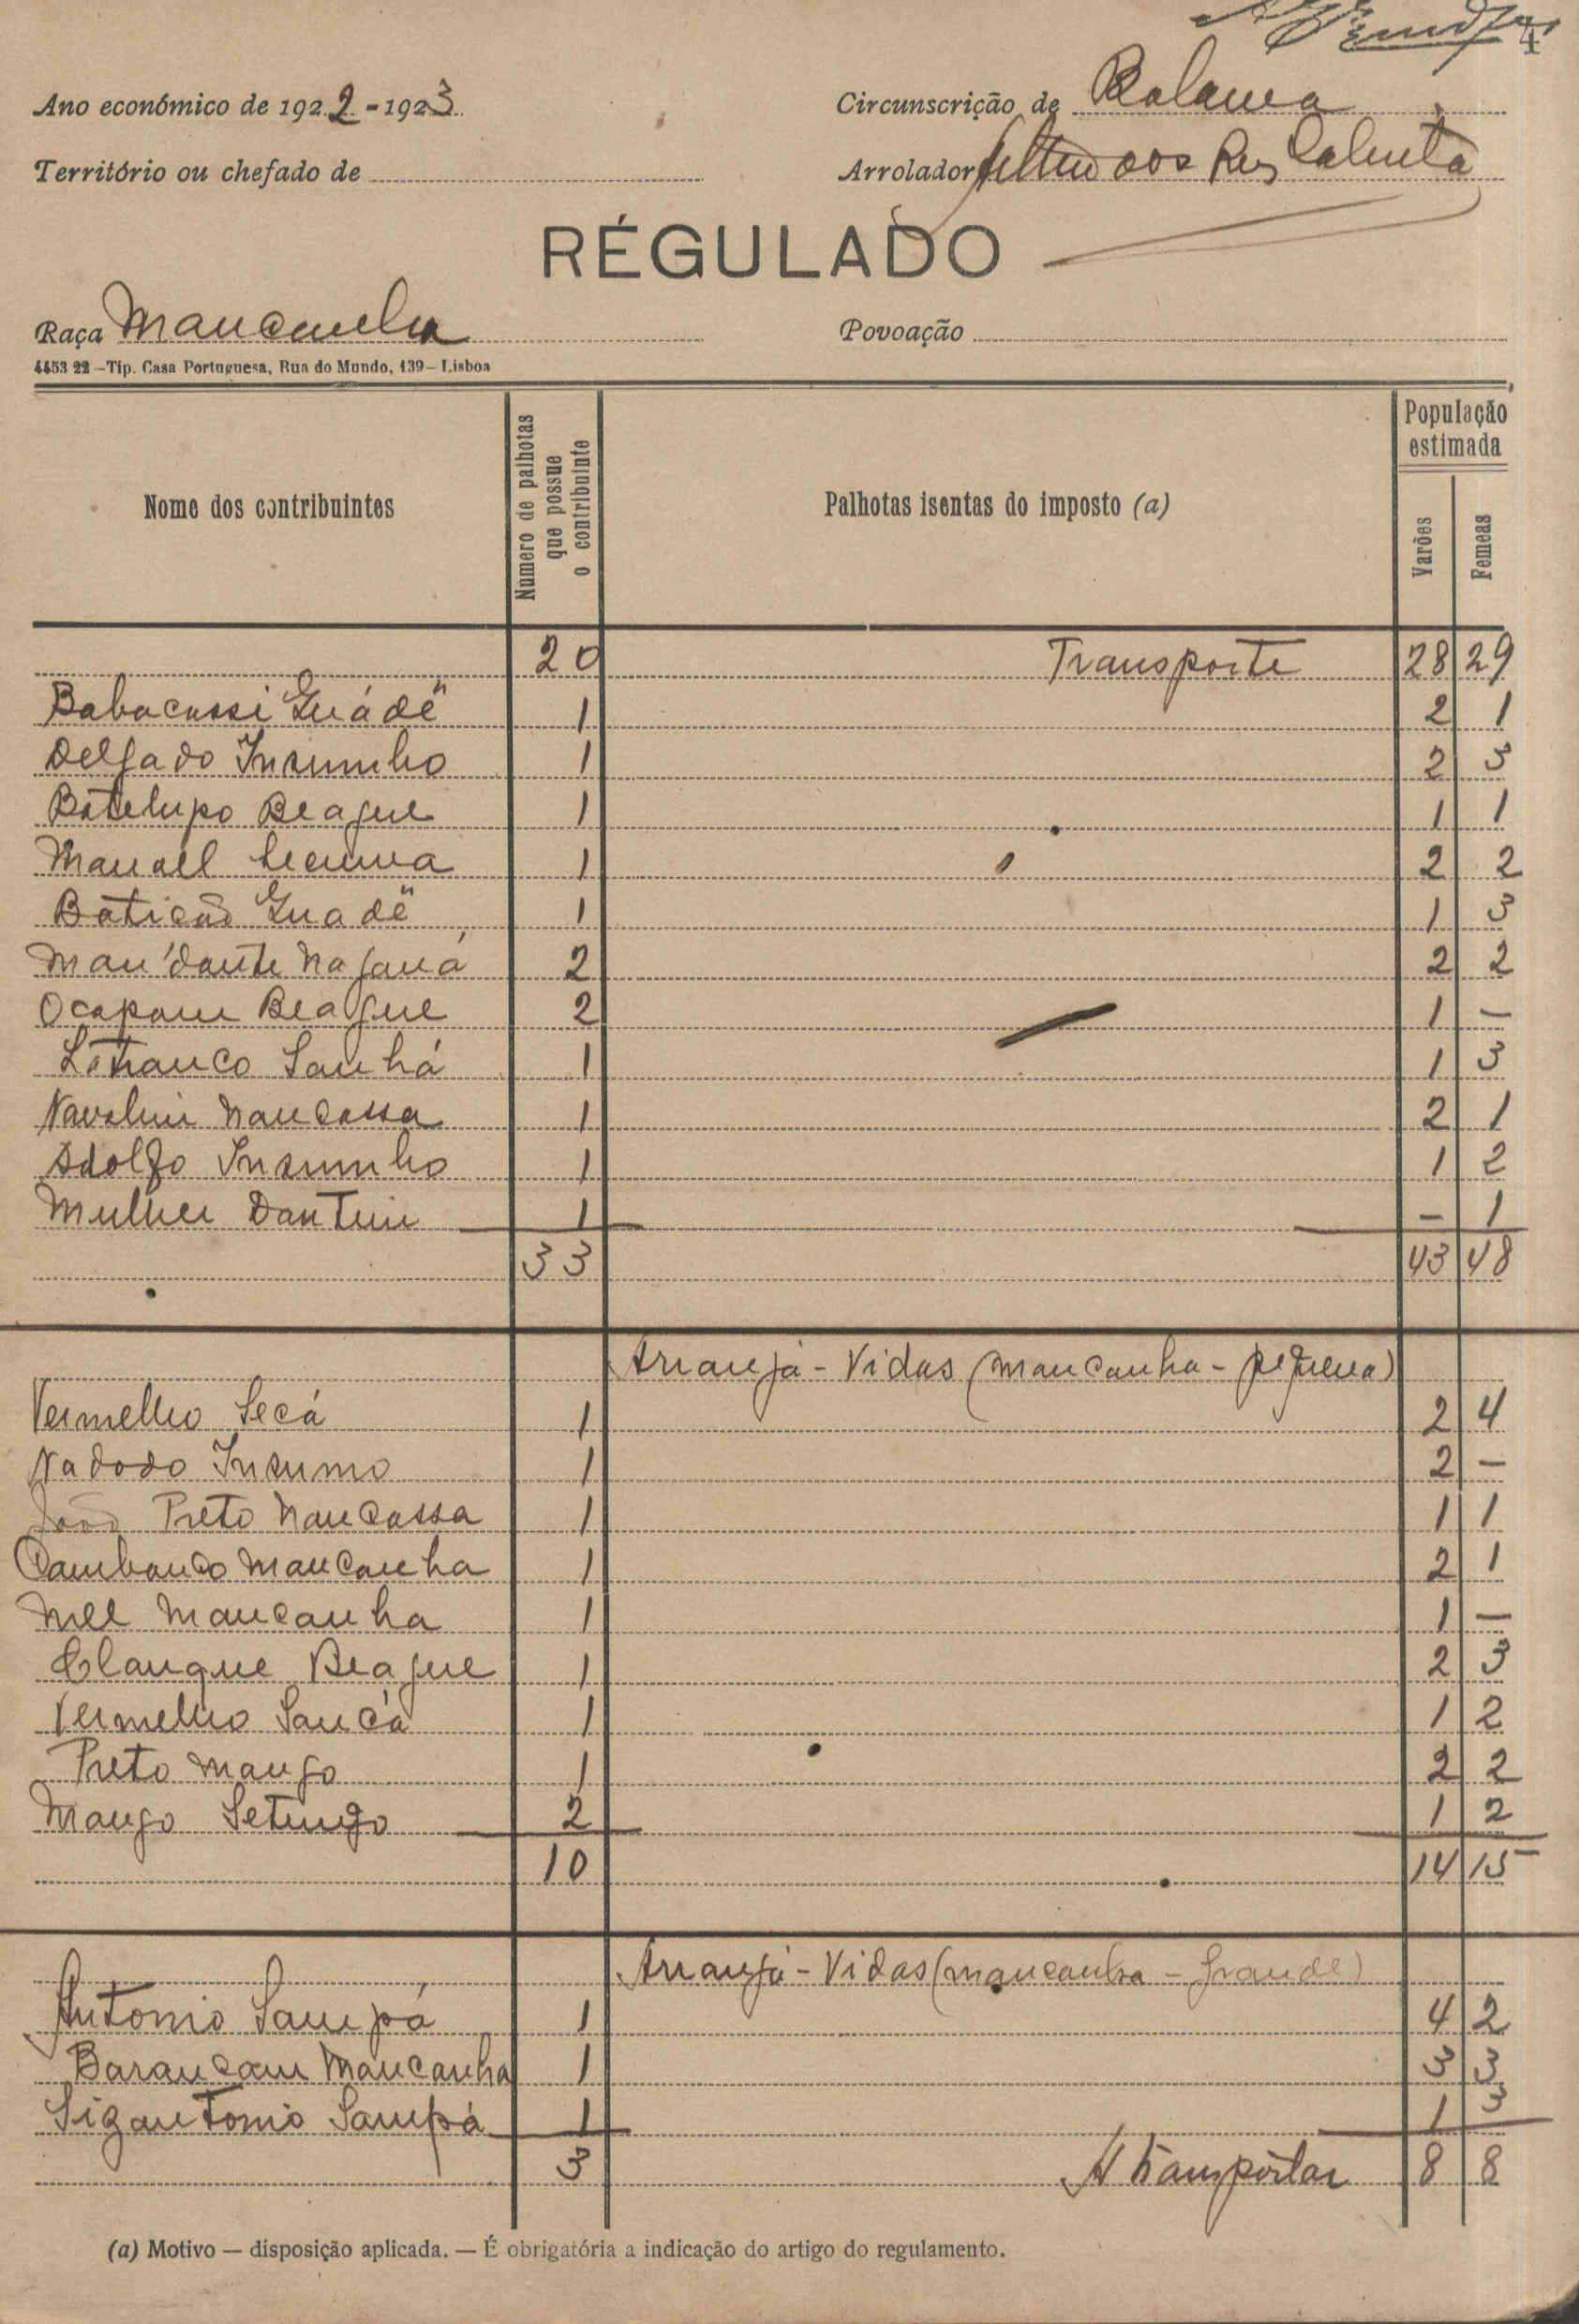 4
Ano económico de 1922-1923
Circunscrição de Bolama
Território ou chefado de
Arrolador
RÉGULADO
Raça Mancanha
Povoação
4453 22 – Tip. Casa Portuguesa, Rua do Mundo, 139 – Lisboa
Nome dos contribuintes
Numero de palhotas que possue o contribuinte
Palhotas isentas do imposto (a)
População estimada
Varões
Femeas
20 Transporte 28 29
Babacassi Guádê 1 2 1
Delgado Insumho 1 2 3
Batelupo Beague 1 1 1
Manoel 1 2 2
Baticão Guadê 1 1 3
Man'dante Naganá 2 2 2
Ocapam Beague 2 1 –
Lófranco Sanhá 1 1 3
Navolim Nancassa 1 2 1
Adolfo Insumho 1 1 2
Mulher Dantuir 1 – 1
33 43 48
Arranjá-Vidas (mancanha-pequena)
Vermelho Secá 1 2 4
Nadodo Insumo 1 2 –
João Preto Nancassa 1 1 1
Cambanco Mancanha 1 2 1
Mel Mancanha 1 1 –
Clanque Beague 1 2 3
Vermelho Sancá 1 1 2
Preto Mango 1 2 2
Mango Setungo 2 1 2
10 14 15
Arranjá-Vidas (mancanha-grande)
Antonio Sampá 1 4 2
Barancam Mancanha 1 3 3
Sigantonio Sampá 1 1 3
3 A transportar 8 8
(a) Motivo — disposição aplicada. — É obrigatória a indicação do artigo do regulamento.